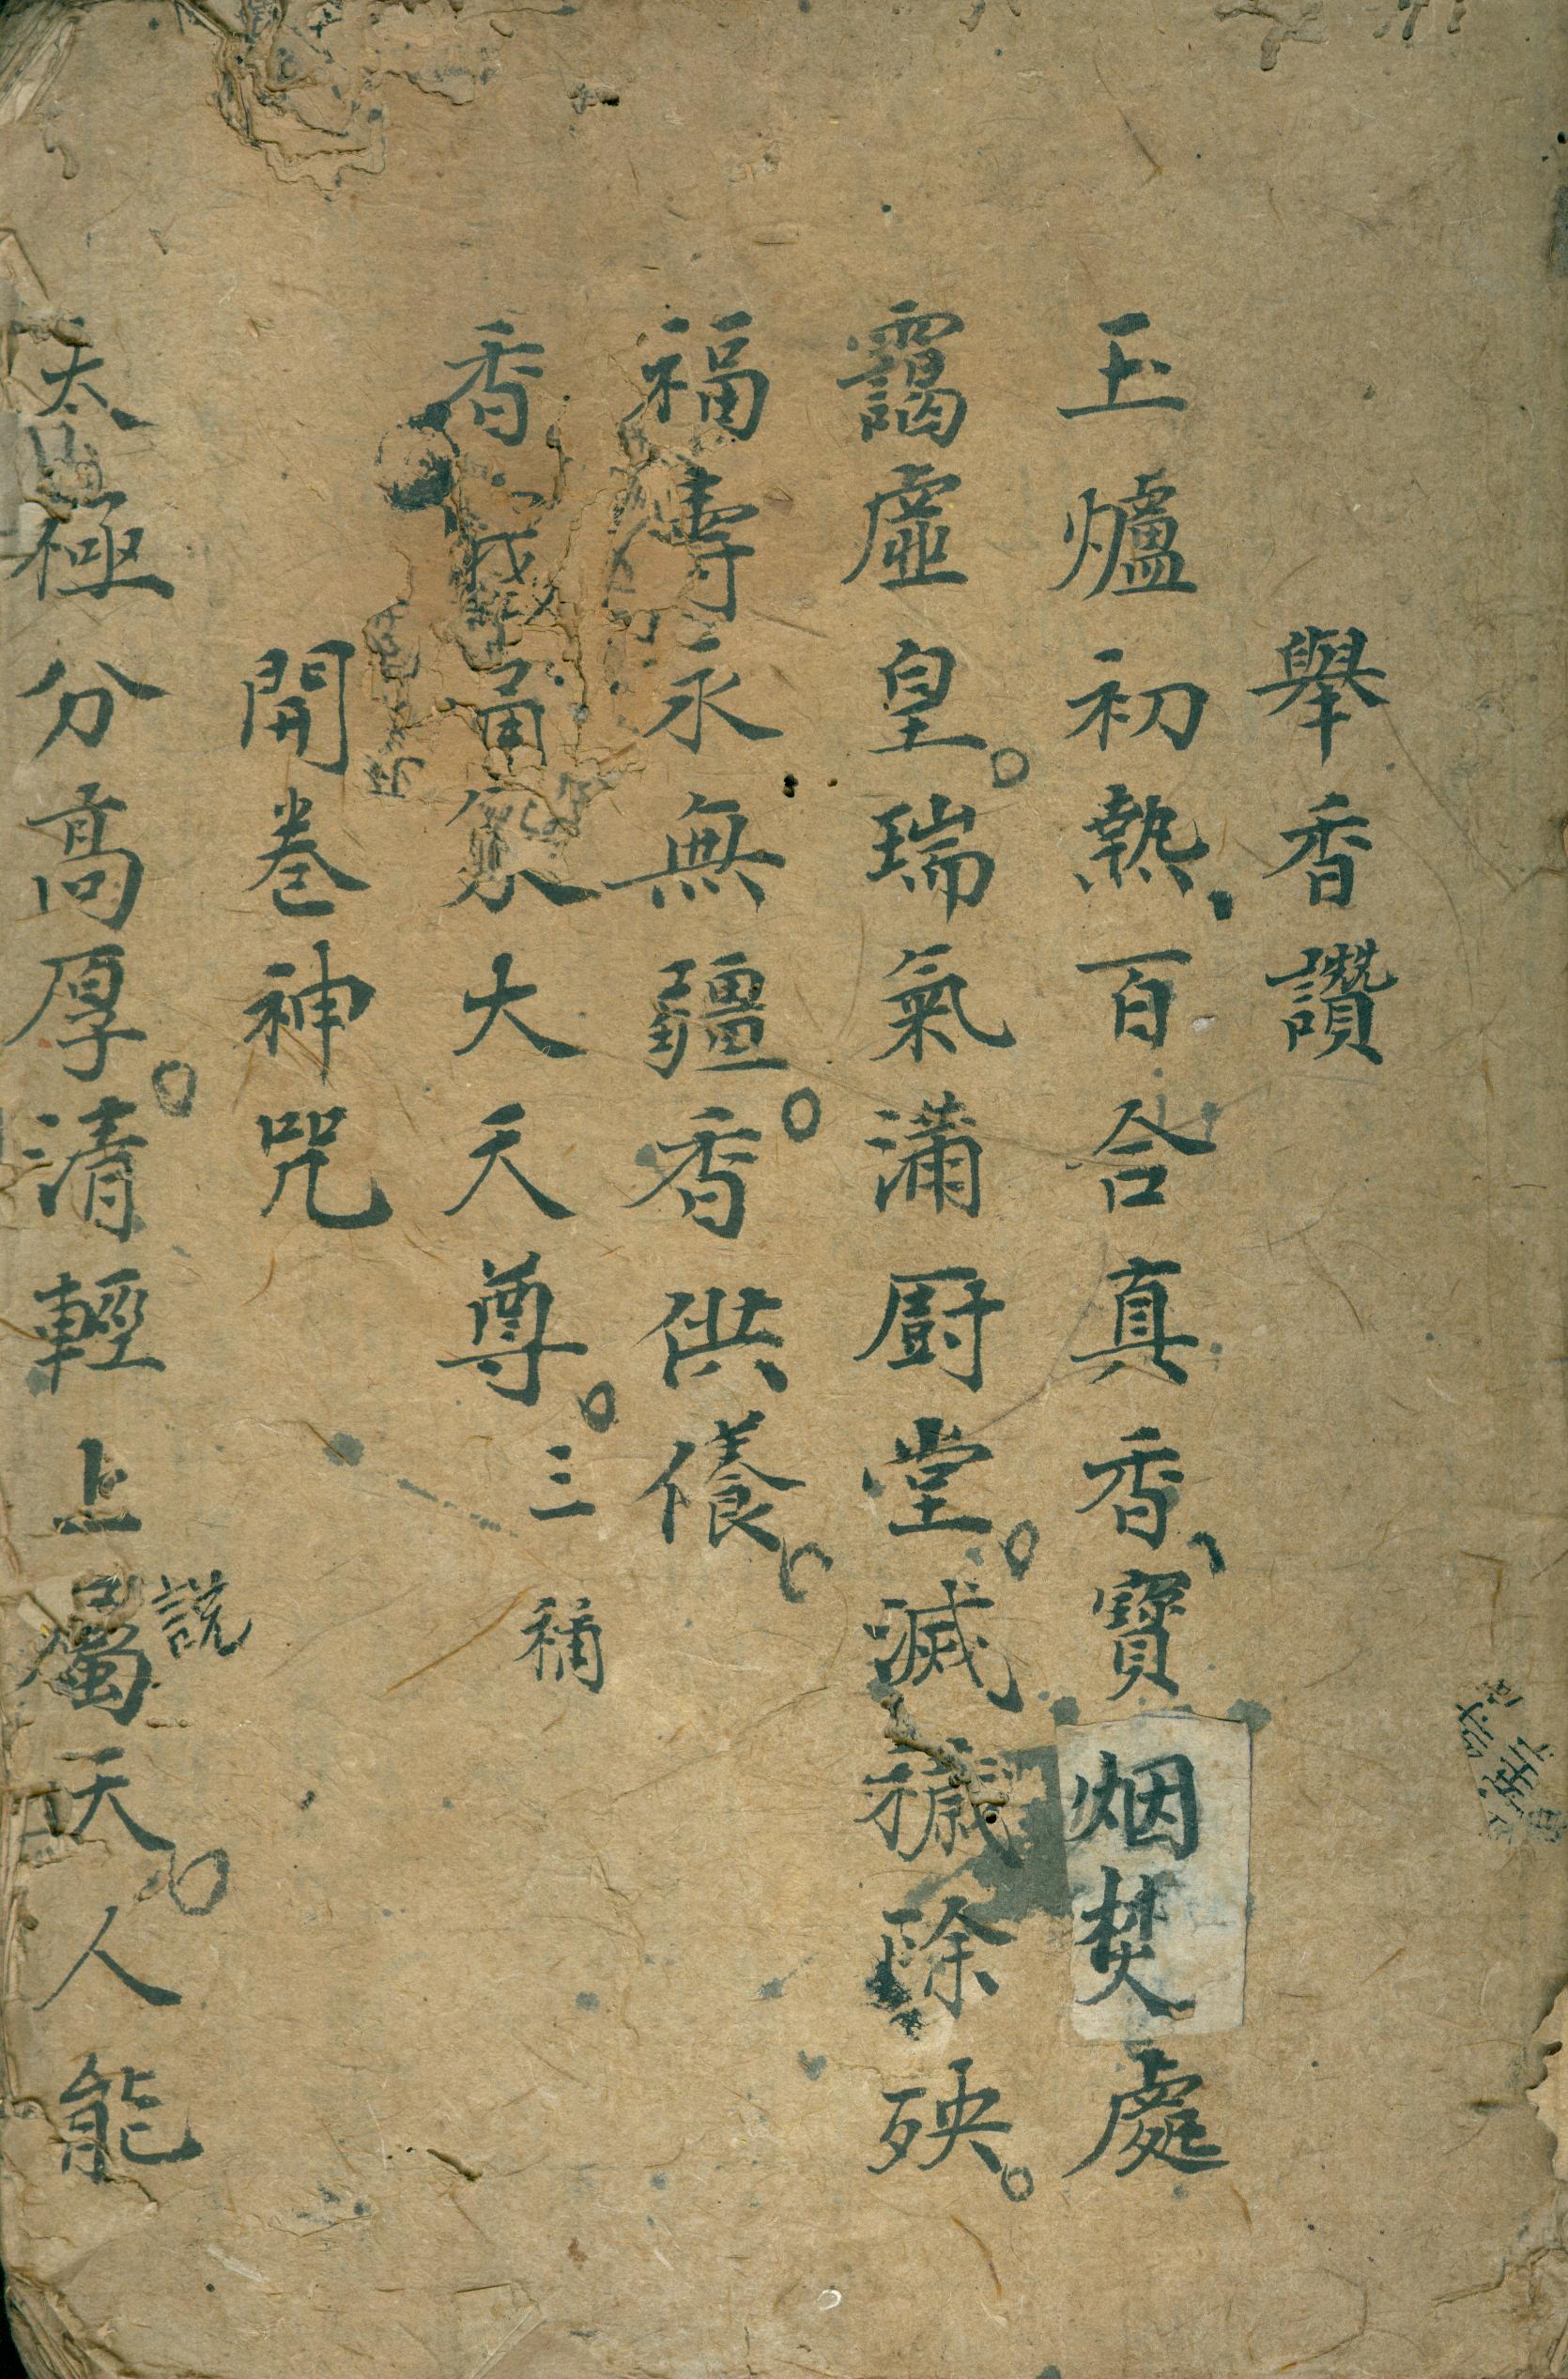 舉香讚
玉爐初熱、百合真香、寳烟焚處
靄虛皇。瑞氣滿厨堂。滅穢除殃。
福壽永無疆。香供養。
香 大天尊。三稱
開卷神咒
太極分高厚。清輕上屬天。人能
説